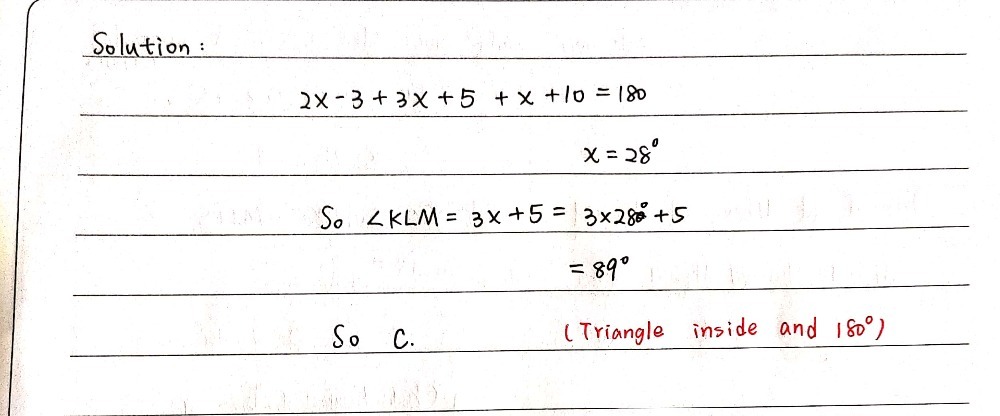 Solution :
2x - 3 + 3x + 5 + x + 10 = 180
x = 28°
So ∠KLM = 3x + 5 = 3×28° + 5
= 89°
So C. (Triangle inside and 180°)